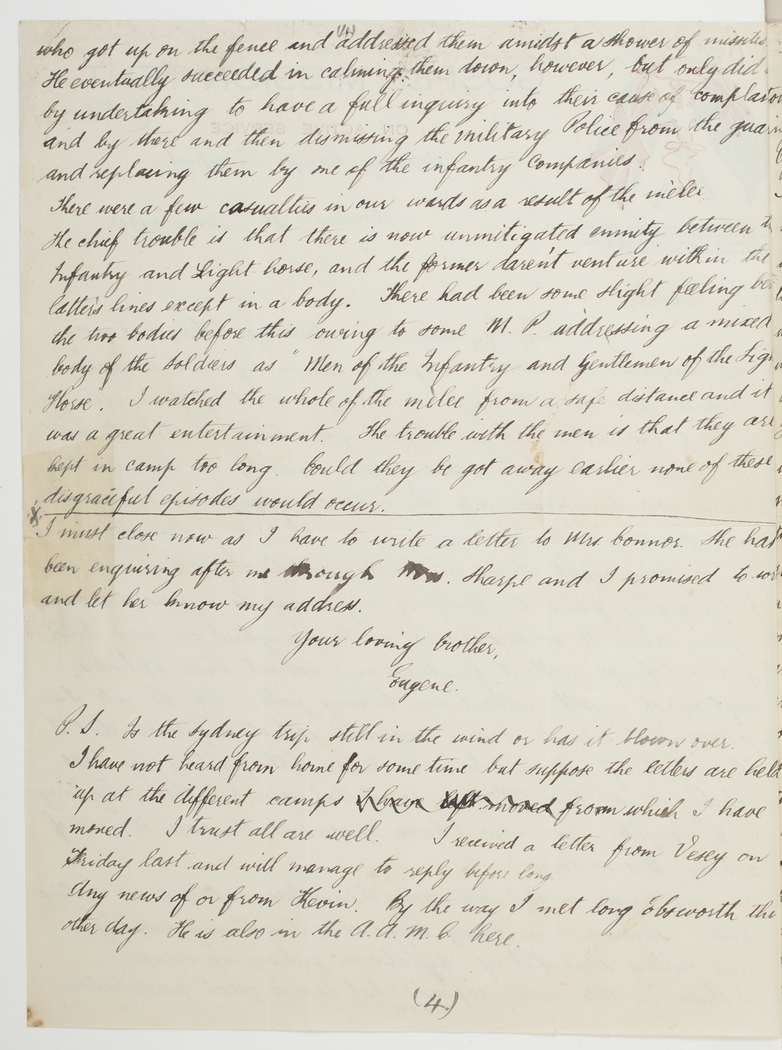 (4)
who got up on the fence and addressed them amidst a shower of missiles
He eventually succeeded in calming them down, however, but only did
by undertaking to have a full inquiry into their cause of
and by there and then dismissing the Military Police from the
and replacing them by one of the infantry companies.
There were a few casualties in our wards as a result of the mêlee
The chief trouble is that there is now unmitigated enmity between
Infantry and Light horse, and the former daren't venture within the
latter's lines except in a body. There had been some slight feeling
the two bodies before this owing to some M. P. addressing a mixed
body of the soldiers as "Men of the Infantry and Gentlemen of the
Horse". I watched the whole of the mêlee from a safe distance and it
was a great entertainment. The trouble with the men is that they are
kept in camp too long. Could they be got away earlier none of these
disgraceful episodes would occur.
I must close now as I have to write a letter to Mrs Connor. She has
been enquiring after me through Mrs. Sharpe and I promised to
and let her know my address.
Your loving brother,
Eugene.
P. S. Is the Sydney trip still in the wind or has it blown over.
I have not heard from home for some time but suppose the letters are held
up at the different camps I have left moved from which I have
moved. I trust all are well. I received a letter from Vesey on
Friday last and will manage to reply before long
Any news of or from Kevin. By the way I met long Ebsworth the
other day. He is also in the A. A. M. C. here.
(4.)